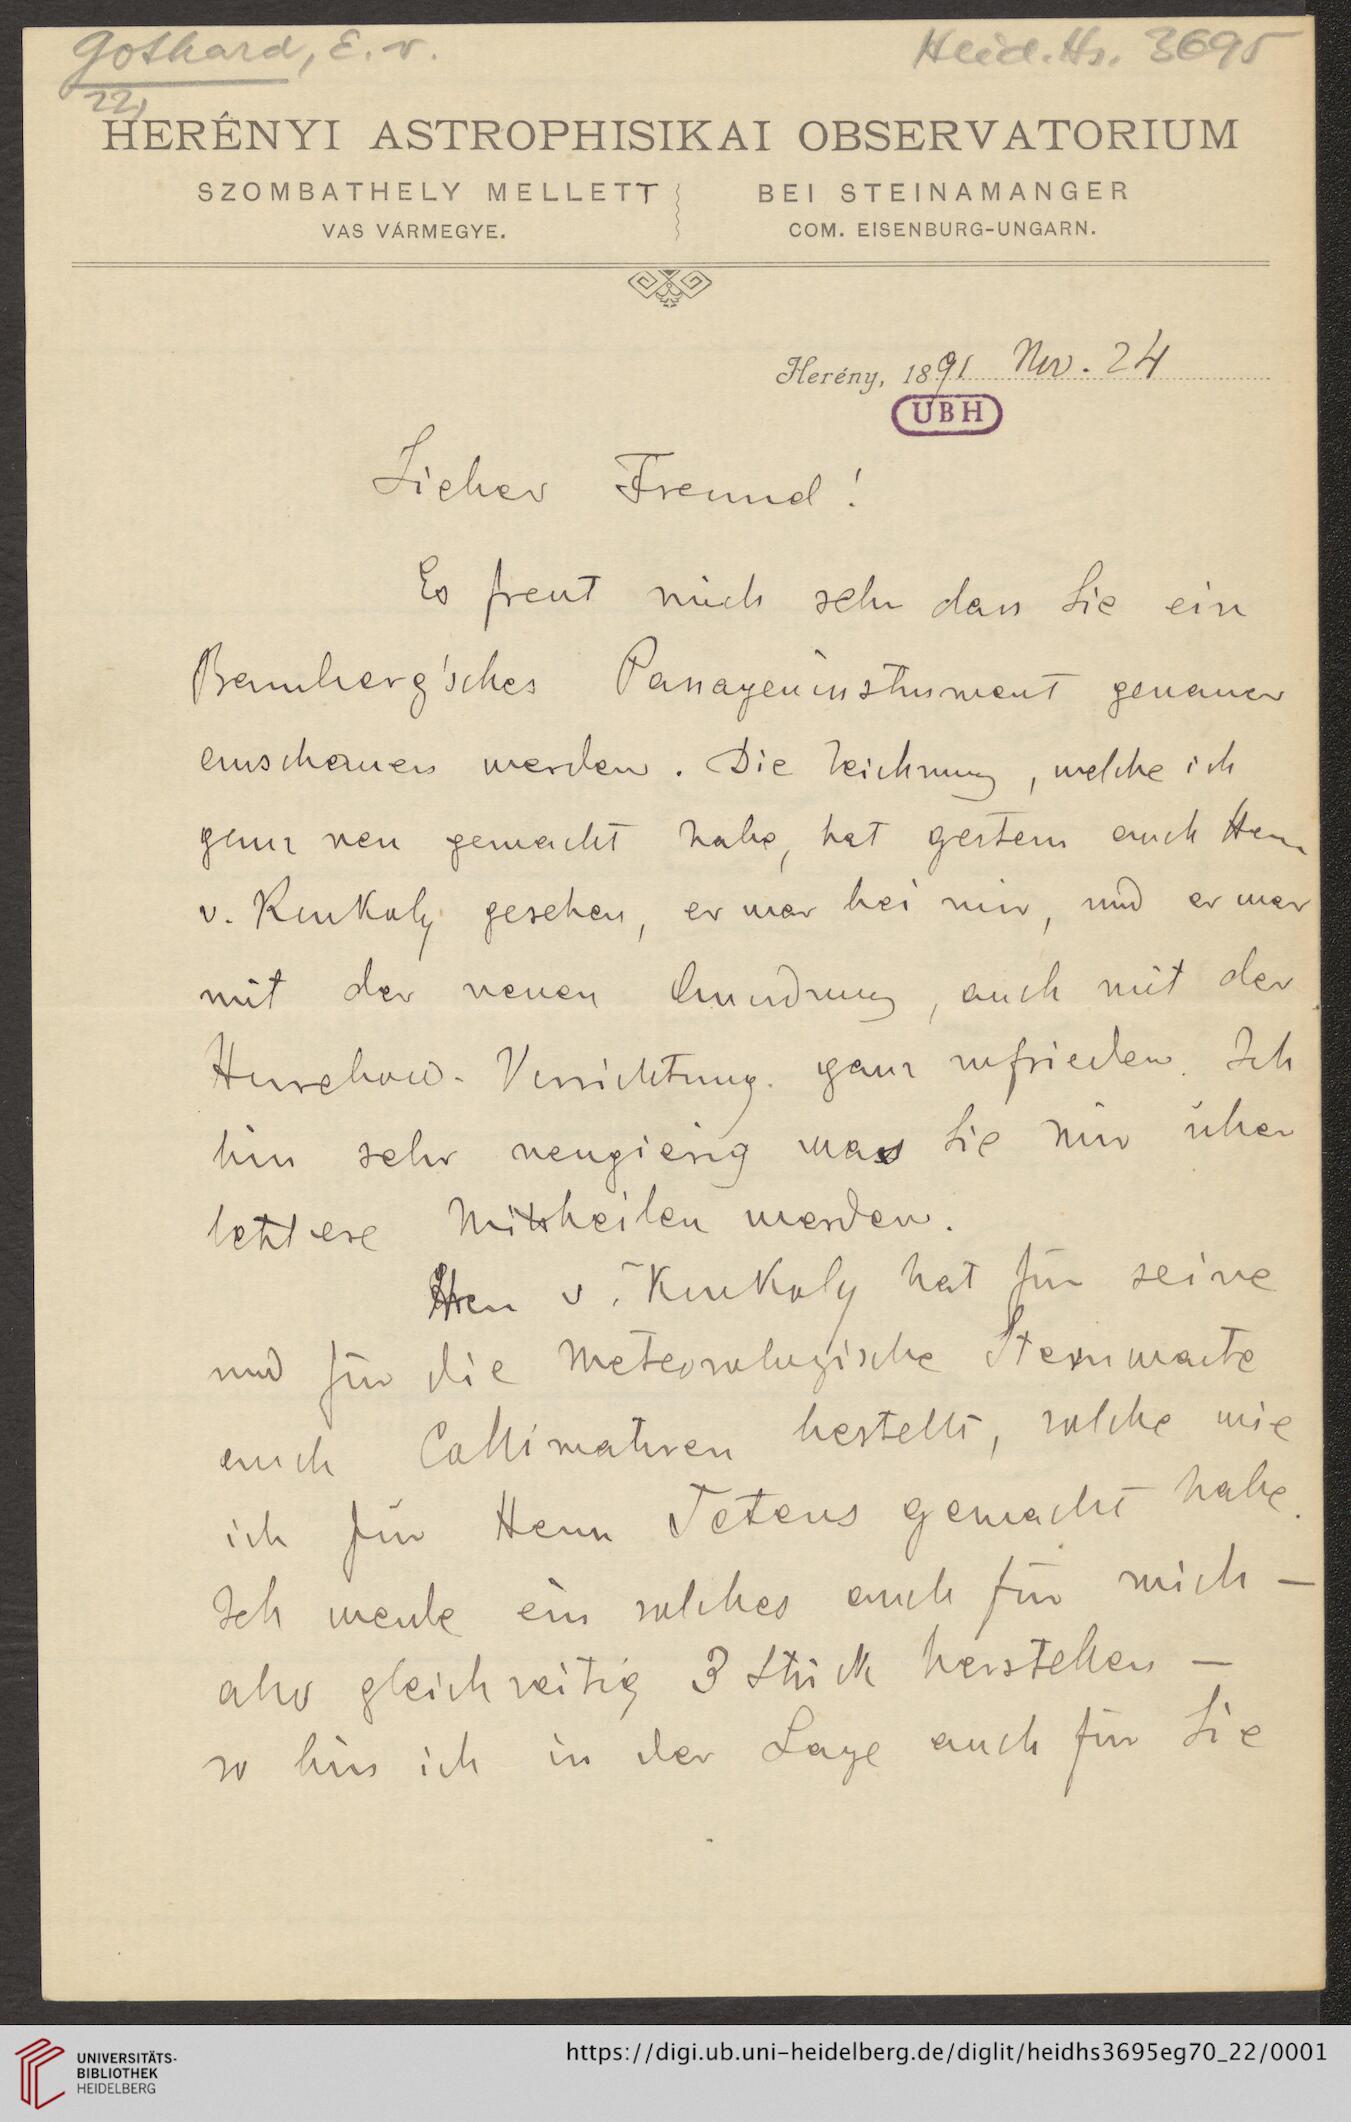 Gothard, E. v.
Heid. Hs. 3695
22,
HERÉNYI ASTROPHISIKAI OBSERVATORIUM
SZOMBATHELY MELLETT
VAS VÁRMEGYE.
BEI STEINAMANGER
COM. EISENBURG-UNGARN.
Herény, 1891 Nov. 24
UBH
Lieber Freund!
Es freut mich sehr dass Sie ein
Bamberg'sches Passageninstrument genauer
anschauen werden. Die Zeichnung, welche ich
ganz neu gemacht habe, hat gestern auch Herr
v. Konkoly gesehen, er war bei mir, und er war
mit der neuen Anordnung, auch mit der
Horrebow-Vorrichtung ganz zufrieden. Ich
bin sehr neugierig was Sie mir über
letztere Mittheilen werden.
Herr v. Konkoly hat für seine
und für die Meteorologische Sternwarte
auch Collimatoren bestellt, solche wie
ich für Herrn Tetens gemacht habe.
Ich werde ein solches auch für mich —
also gleichzeitig 3 Stück herstellen —
so bin ich in der Lage auch für Sie
UNIVERSITÄTS-
BIBLIOTHEK
HEIDELBERG
https://digi.ub.uni-heidelberg.de/diglit/heidhs3695eg70_22/0001